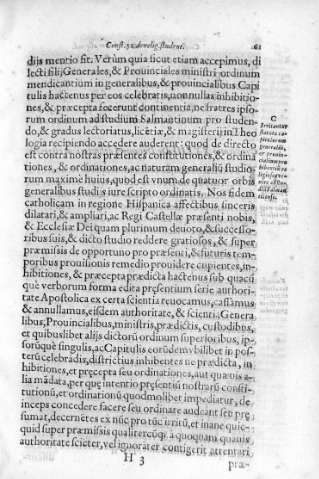 Const. 33. de relig. student. 61
dijs mentio fit. Verùm quia sicut etiam accepimus, di
lecti filij Generales, & Prouinciales ministri ordinum
mendicantium in generalibus, & prouincialibus Capi
tulis hactenus per eos celebratis, nonnullas inhibitio-
nes, & præcepta fecerunt continentia, ne fratres ipso-
rum ordinum ad studium Salmantinum pro studen-
do, & gradus lectoriatus, licētiæ, & magisterij in Theo
logia recipiendo accedere auderent: quod de directo
est contra nostras præsentes constitutiones, & ordina
tiones, & ordinationes, ac naturam generaliū studio
rum maximè huius, quod est vnum de quatuor orbis
generalibus studijs iure scripto ordinatis. Nos fidem
catholicam in regione Hispanica affectibus sinceris
dilatari, & ampliari, ac Regi Castellæ præsenti nobis,
& Ecclesiæ Dei quam plurimum deuoto, & successo-
ribus suis, & dicto studio reddere gratiosos, & super
præmissis de opportuno pro præsenti, & futuris tem-
poribus prouisionis remedio prouidere cupientes, in-
hibitiones, & præcepta prædicta hactenus sub quacũ
què verborum forma edita præsentium serie authori-
tate Apostolica ex certa scientia reuocamus, cassamus
& annullamus, eisdem authoritate, & scientia, Genera
libus, Prouincialibus, ministris, prædictis, custodibus,
et quibuslibet alijs dictorũ ordinum superioribus, ip-
sorũquè singulis, ac Capitulis eorũdem vbilibet in pos-
terũ celebrãdis, districtius inhibentes ne prædicta, in
hibitiones, et precepta seu ordinationes, aut quæuis a-
lia mãdata, per quę intentio pręsentiũ nostrarũ consti-
tutionũ, et ordinationũ quodmolibet impediatur, de-
inceps concedere facere seu ordinare audeant seu prę-
sumat, decernētes ex nũc pro tũc irritũ, et inane quic-
quid super præmissis qualitercũq; à quoquam quauis
authoritate scieter, vel ignorater contigerit attentari,
H 3
præ-
C